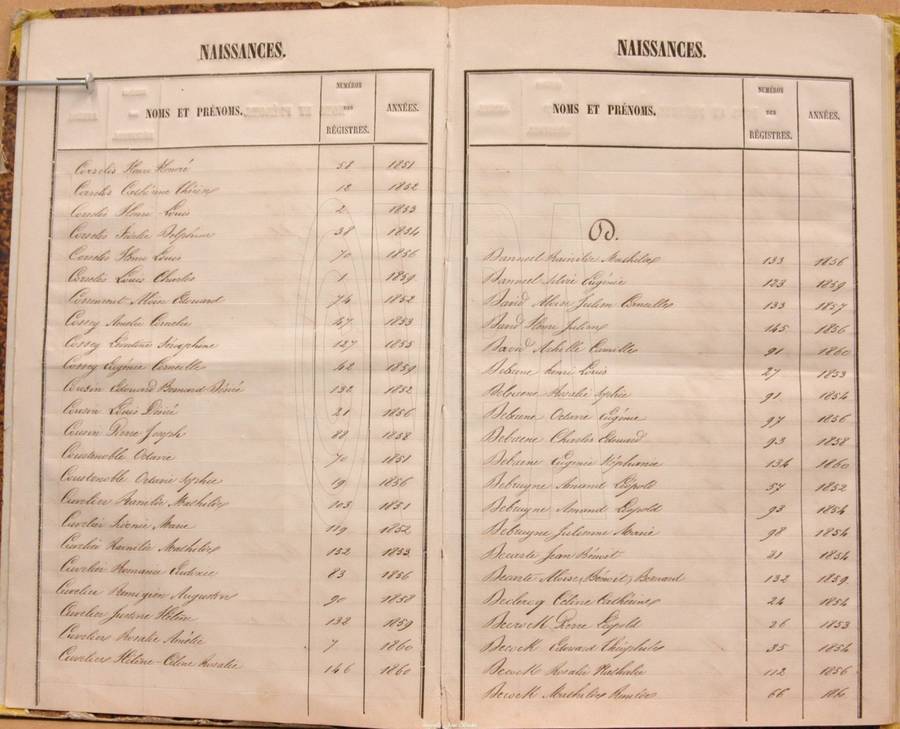 NAISSANCES.
NOMS ET PRÉNOMS.
NUMÉROS
DES
RÉGISTRES.
ANNÉES.
Corselis Henri Honoré 58 1851
Corselis Cathérine 12 1852
Corselis Henri Louis 2 1853
Corselis Delphine 38 1854
Corselis Henri Louis 70 1856
Corselis Louis Charles 1 1859
Alois Edouard 74 1852
Cossey Amélie Cornelie 47 1853
Cossey Léontine Séraphine 127 1855
Cossey Eugénie 42 1859
Cousin Edouard Bernard Désiré 132 1852
Cousin Louis Désiré 21 1856
Cousin Pierre Joseph 88 1858
Coustenoble Octavie 70 1851
Coustenoble Octavie Sophie 19 1856
Cuvelier Mathilde 103 1851
Cuvelier Léonie Marie 119 1852
Cuvelier Mathilde 132 1853
Cuvelier Romanie Eudoxie 83 1856
Cuvelier Augustin 90 1858
Cuvelier Justine Hélène 132 1859
Cuvelier Rosalie Amélie 7 1860
Cuvelier Hélène-Céline Rosalie 146 1860
NAISSANCES.
NOMS ET PRÉNOMS.
NUMÉROS
DES
RÉGISTRES.
ANNÉES.
D.
Danneel Mathilde 133 1856
Danneel Silvie Eugénie 123 1859
David Alois Julien 133 1857
David Henri Julien 145 1856
David Achille Camille 91 1860
Debaene Henri Louis 27 1853
Debaene Rosalie Sophie 91 1854
Debaene Octavie Eugénie 97 1856
Debaene Charles Edouard 93 1858
Debaene Eugénie Stéphanie 134 1860
Debruyne Amand Léopold 57 1852
Debruyne Amand Léopold 93 1854
Debruyne Julienne Marie 98 1854
Jean Benoit 21 1854
Aloise, Benoit, Bernard 132 1859
Declercq Céline Cathérine 24 1854
Decrock Pierre Léopold 26 1853
Decrock Edouard Théophile 35 1854
Decrock Rosalie Nathalie 112 1856
Decrock Mathilde 66